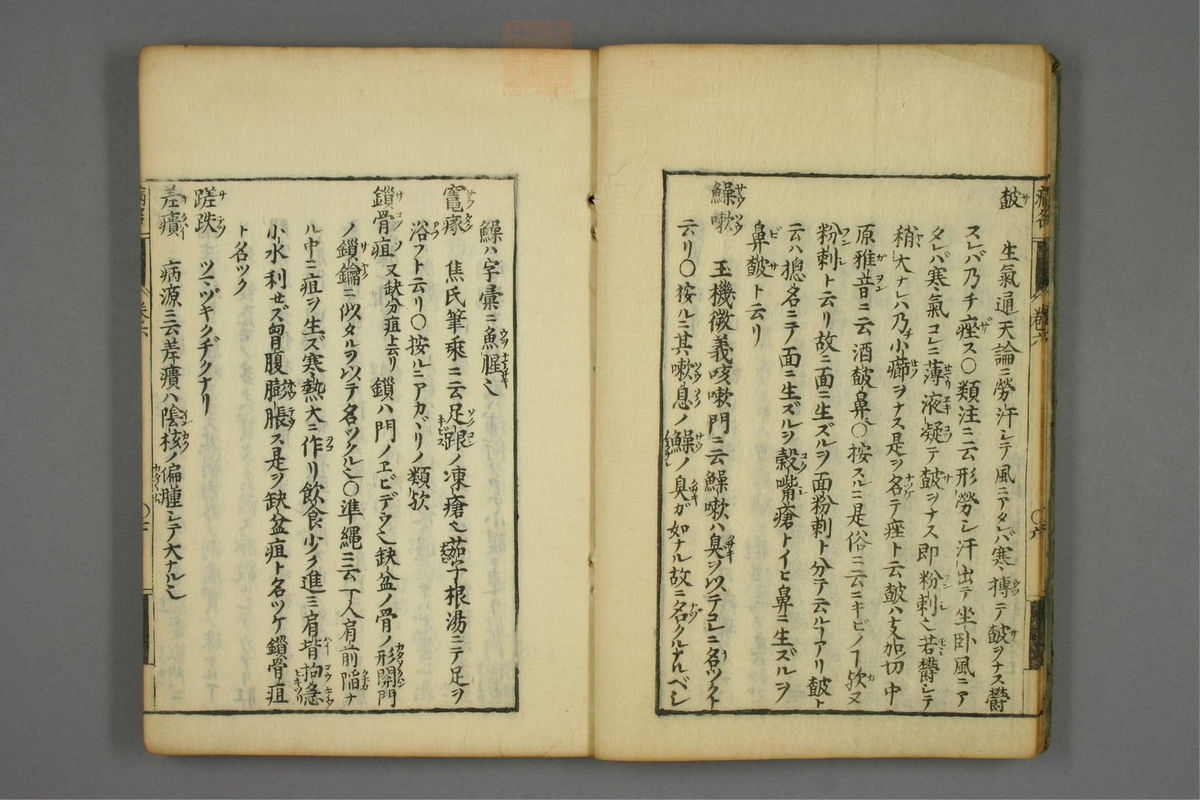 皶
生氣通天論ニ勞汗シテ風ニアタレバ寒搏テ皶ヲナス欝
スレバ乃チ痤ス〇類注ニ云形勞シ汗出テ坐臥風ニア
タレバ寒氣コレニ薄液凝テ皶ヲナス即粉刺也若欝シテ
稍大ナレハ乃チ小癤ヲナス是ヲ名テ痤ト云皶ハ支加切中
原雅音ニ云酒皶鼻〇按スルニ是俗ニ云ニキビノ欤又
粉刺ト云リ故ニ面ニ生ズルヲ面粉刺ト分テ云アリ皶ト
云ハ摠名ニテ面ニ生ズルヲ穀嘴瘡トイヒ鼻ニ生ズルヲ
鼻皶ト云リ
鱢嗽 玉機微義咳嗽門ニ云鱢嗽ハ臭ヲ以テコレニ名ツクト
云リ〇按ルニ其嗽息ノ鱢ノ臭ガ如ナル故ニ名クルナルベシ
鱢ハ字彙ニ魚腥也
竃瘃 焦氏筆乘ニ云足跟ノ凍瘡也茄子根湯ニテ足ヲ
浴フト云リ〇按ルニアカヾリノ類欤
鎖骨疽 又缺分疽上云リ 鎖ハ門ノエビデウ也缺盆ノ骨ノ形開門
ノ鎖鑰ニ似タルヲ以テ名ツクル也〇準縄ニ云丁人肩前陥ナ
ル中ニ疽ヲ生ズ寒熱大ニ作リ飲食少ク進ミ肩背拘急
小水利セズ胷腹膨脹ス是ヲ缺盆疽ト名ツケ鎖骨疽
ト名ツク
蹉跌 ツマヅキクヂクナリ
差㿉 病源ニ云差㿉ハ陰核ノ偏腫シテ大ナル也